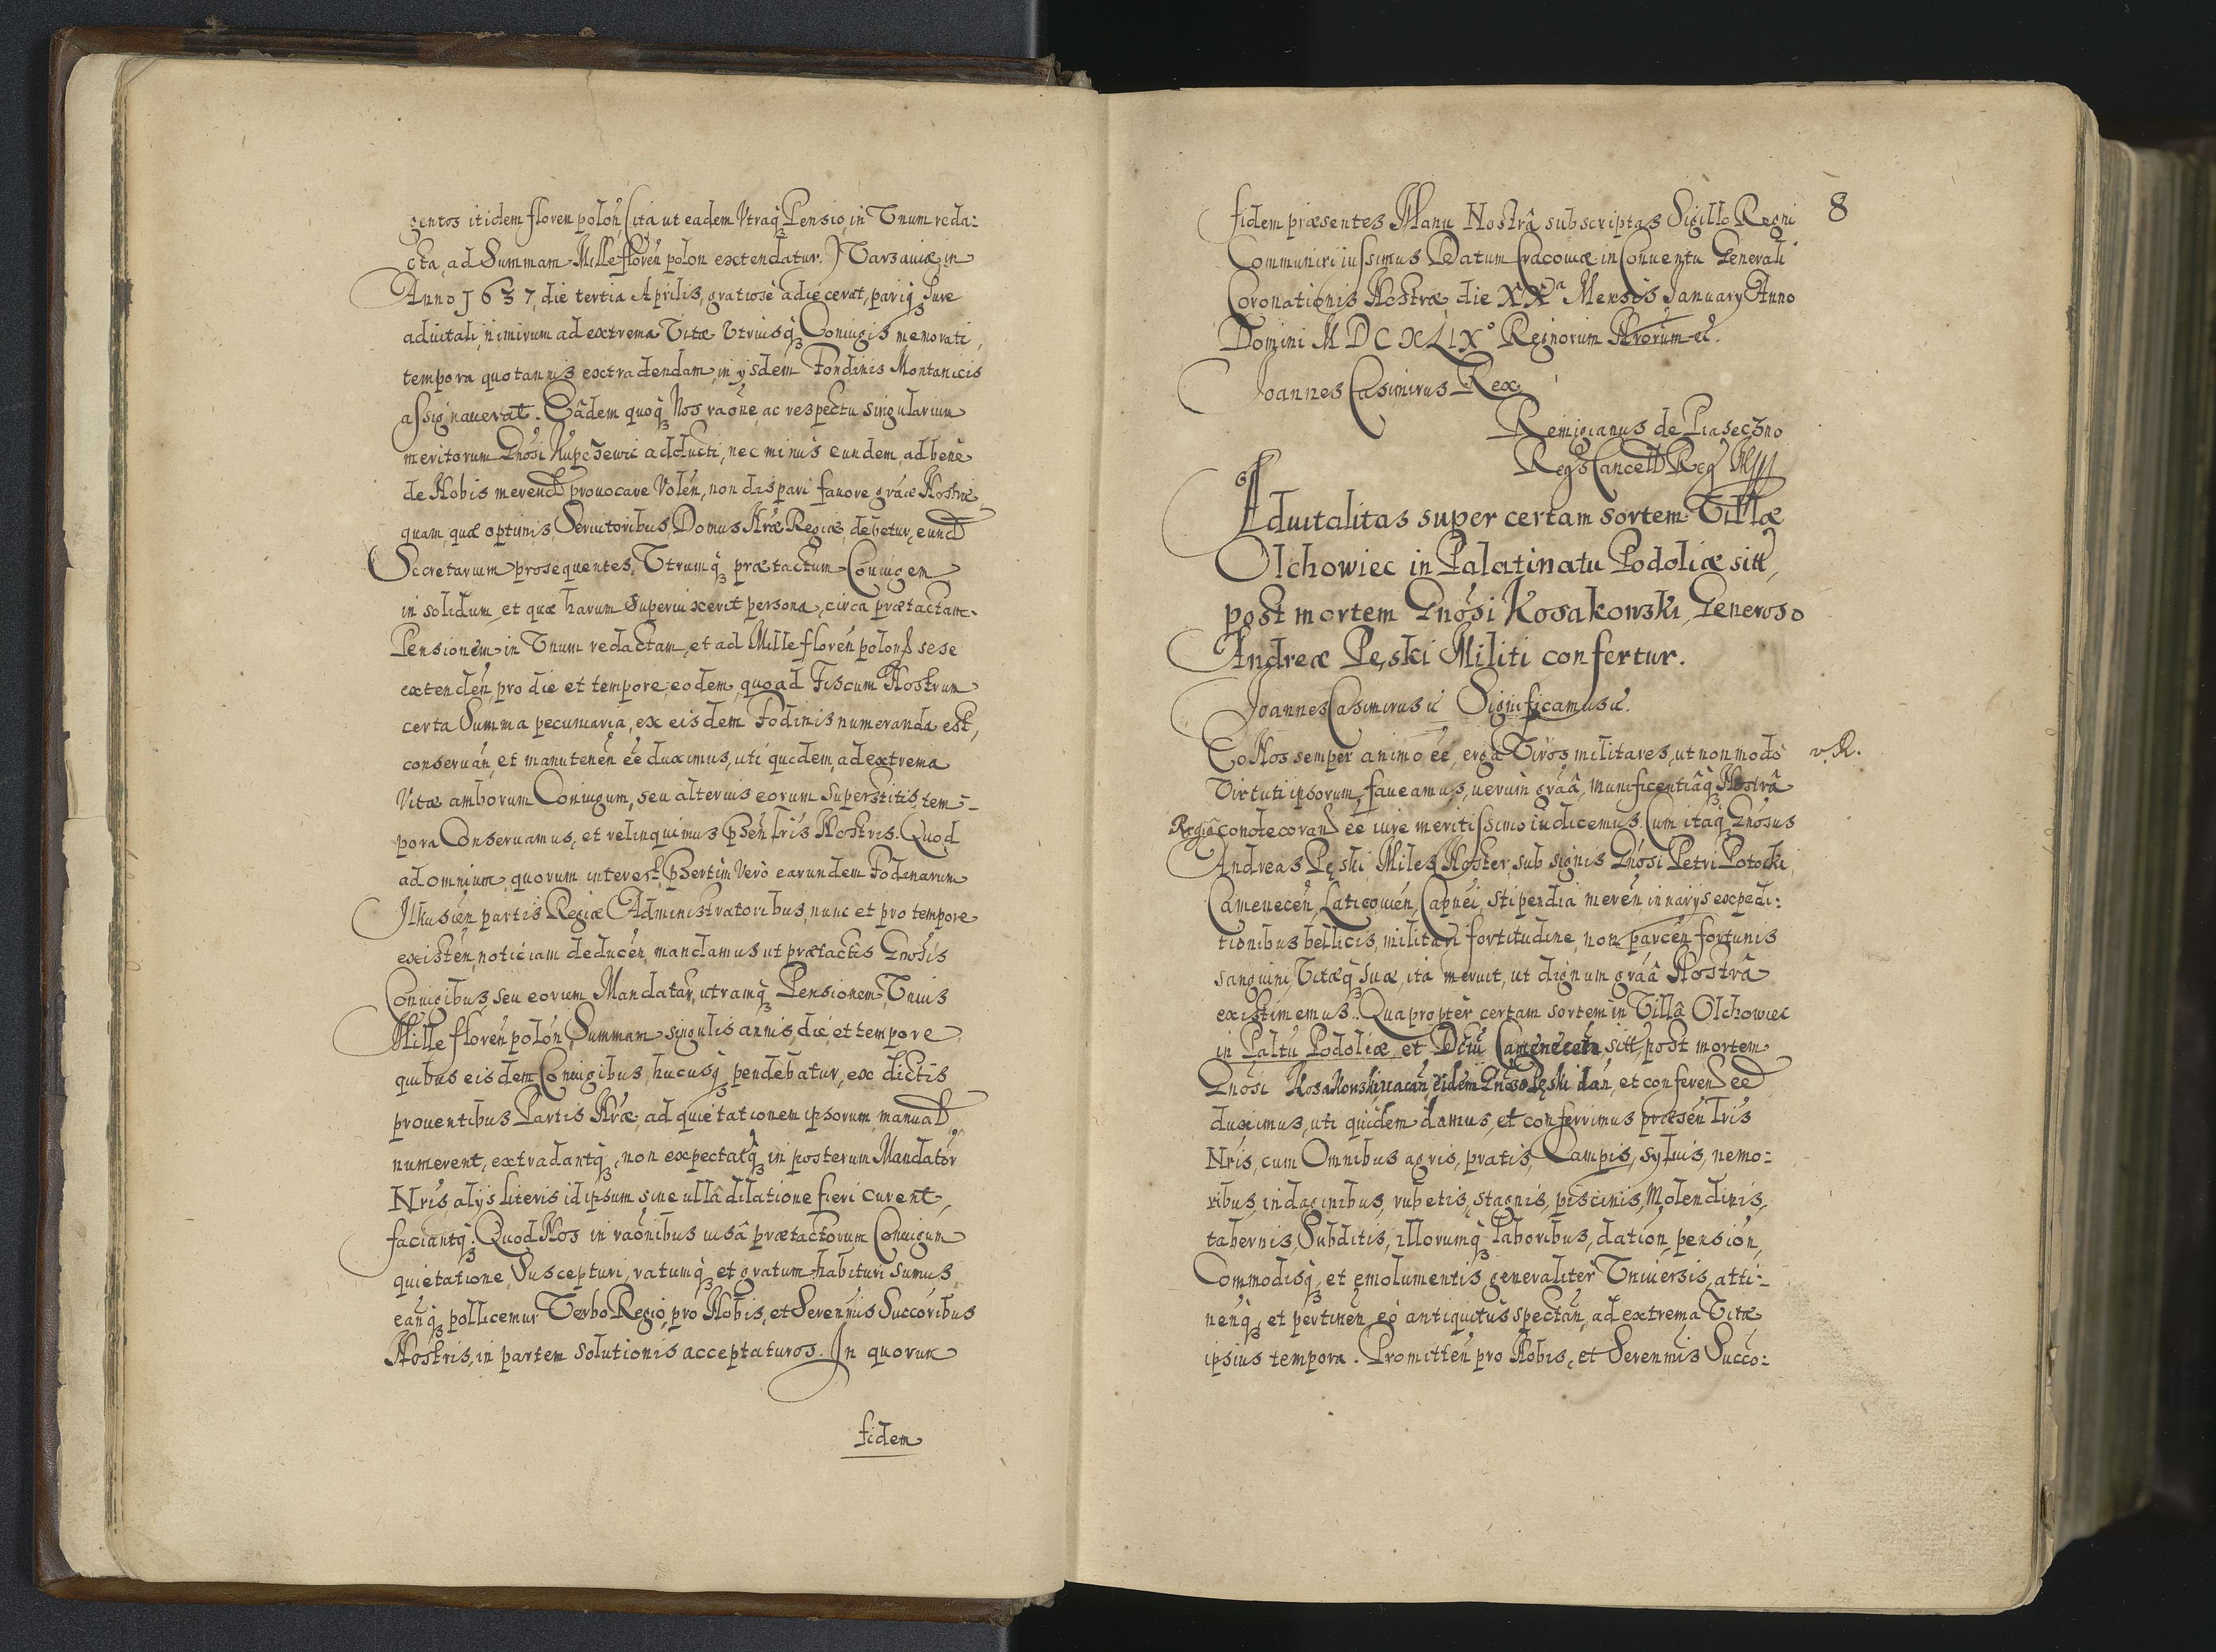 gentos itidem floren polon̄, (ita ut eadem Utraq̃ Pensio, in Unum reda-
cta, ad Summam Mille floren̄ polon extendatur.) Varsaviæ in
Anno 1637, die tertia Aprilis, gratiosè adiecerat, pariq̃ Iure
advitali, nimirum ad extrema Vitæ Utriusq̃ Coniugis memorati,
tempora quotannis extradendam, in ysdem Fondinis Montanicis
assignaverat. Eâdem quoq̃ Nos rãone, ac respectu singularium
meritorum Gnõsi Kupczewic adducti, nec minus eundem, ad bene
de Nobis merend provocare Volen̄, non dispari favore grãæ Nostræ,
quam, quæ optimis, Servitoribus, Domus Nræ Regiæ, debetur, eund
Secretarium prosequentes, Utrumq̃ prætactum Coniugem
in solidum, et quæ harum Supervixerit persona, circa prætactam
Pensionem in Unum redactam, et ad Mille floren̄ polon̄ sese
extenden̄, pro die et tempore eodem, quo ad Fiscum Nostrum
certa Summa pecuniaria, ex eisdem Fodinis numeranda est,
conservan̄, et manutenen̄ ẽe duximus, uti quidem, ad extrema
Vitæ amborum Coniugum, seu alterius eorum Superstitis, tem-
pora Conservamus, et relinquimus pñsen̄ lris Nostris. Quod
ad omnium, quorum interest, pñsertim Verò earundem Fodinarum
Ilkusien̄ partis Regiæ Administratoribus, nunc et pro tempore
existen̄, noticiam deducen̄, mandamus ut prætactis Gnõsis
Coniugibus, seu eorum Mandatar̄, utramq̃ Pensionem, Unius
Mille floren̄ polon̄, Summam singulis annis, die et tempore
quibus eisdem Coniugibus, hucusq̃ pendebatur, ex dictis
proventibus Partis Nræ, ad quietationem ipsorum manual
numerent, extradantq̃, non expectatq̃ in posterum Mandator̄
Nris, alys literis idipsum, sine ullâ dilatione fieri curent,
faciantq̃. Quod Nos in raõnibus iusâ prætactorum Coniugum
quietatione Suscepturi, ratumq̃ et gratum habituri sumus,
eanq̃ pollicemur Verbo Regio, pro Nobis, et Serennis Succoribus
Nostris, in partem solutionis acceptaturos. In quorum
fidem
8
fidem præsentes Manu Nostrâ subscriptas Sigillo Regni
Communiri iussimus Datum Cracoviæ in Conventu Generali
Coronationis Nostræ die XXa Mensis January Anno
Domini MDCXLIXo Regnorum Nrorum ec̃.
Joannes Casimirus Rex
Remigianus de Piaseczno
Regs Cancell Reg
Advitalitas super certam sortem Villæ
Olchowiec in Palatinatu Podoliæ sitt,
post mortem Gnõsi Kosakowski, Generoso
Andreæ Pęski Militi confertur.
Joannes Casimirus ec̃ Significamus ec̃.
Eo Nos semper animo ẽe, ergà Viros militares, ut non modò v. R.
Virtuti ipsorum faveamus, verùm grãâ, munificentiâq̃ Nostrâ
Regiâ condecorand ẽe iure meritissimo iudicemus. Cum itaq̃ Gnõsus
Andreas Pęski, Miles Noster, sub signis Gnõsi Petri Potocki,
Camenecen̄, Laticovien̄, Capnei, stipendia meren̄, in varys expedi-
tionibus bellicis, militari fortitudine, non parcen̄ fortunis
sanguini, Vitæq̃ suæ, ità meruit, ut dignum grãâ Nostrâ
existimemus. Quapropter certam sortem in Villâ Olchowiec
in Paltu Podoliæ, et Dctu Camenecen̄ sitt, post mortem
Gnõsi Kosakowski vacan̄, eidem Gnõso Pęski dan̄, et conferend ẽe
duximus, uti quidem damus, et conferrimus præsen̄ lris
Nris, cum Omnibus agris, pratis, Campis, sylvis, nemo-
ribus, indaginibus, rubetis, stagnis, piscinis, Molendinis,
tabernis, Subditis, illorumq̃ laboribus, dation̄, pension̄,
Commodisq̃, et emolumentis generaliter Universis, atti-
nenq̃, et pertinen̄, eò antiquitùs spectan̄, ad extrema Vitæ
ipsius tempora. Promitten̄ pro Nobis, et Serennis Succo-